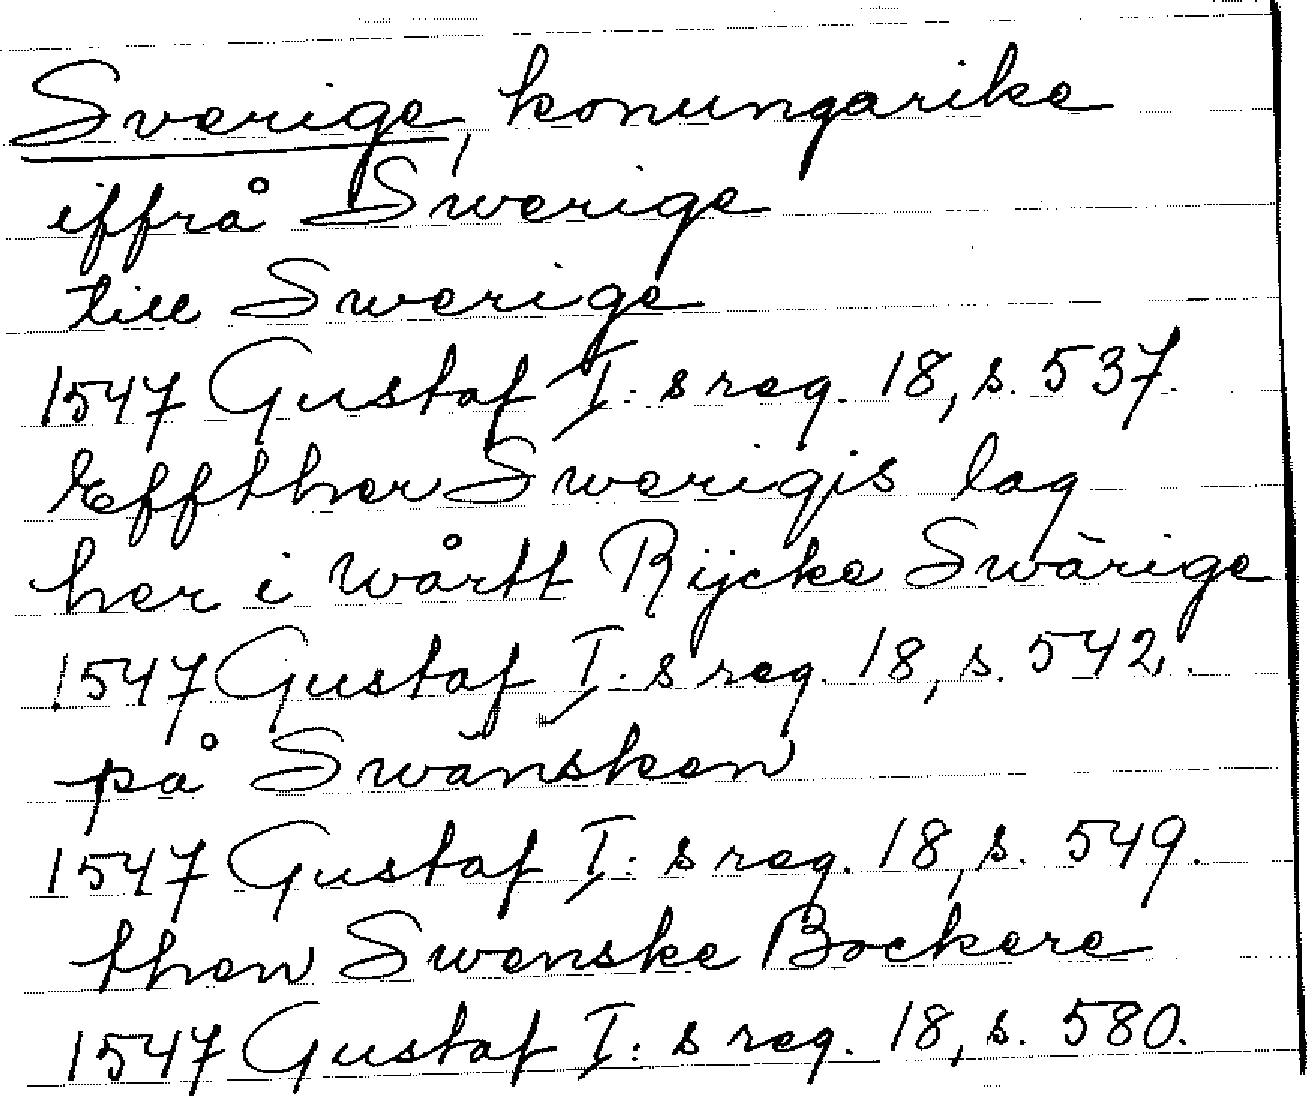 Sverige, konungarike
iffrå Swerige
till Swerige
1547 Gustaf I: s reg. 18, s. 537.
Effther Swerigis lag
her i wårtt Rijcke Swärige
1547 Gustaf I: s reg. 18, s. 542.
på Swänsken
1547 Gustaf I: s reg. 18, s. 549.
then Swenske Bockere
1547 Gustaf I: s reg. 18, s. 580.